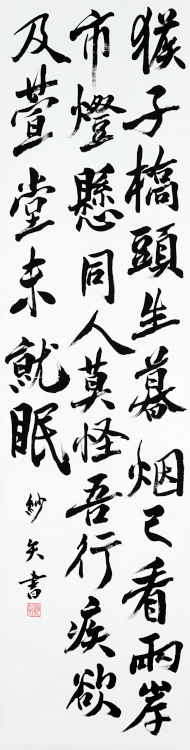 猴子橋頭生暮烟已看兩岸
市燈懸同人莫怪吾行疾欲
及萱堂未就眠
紗矢書